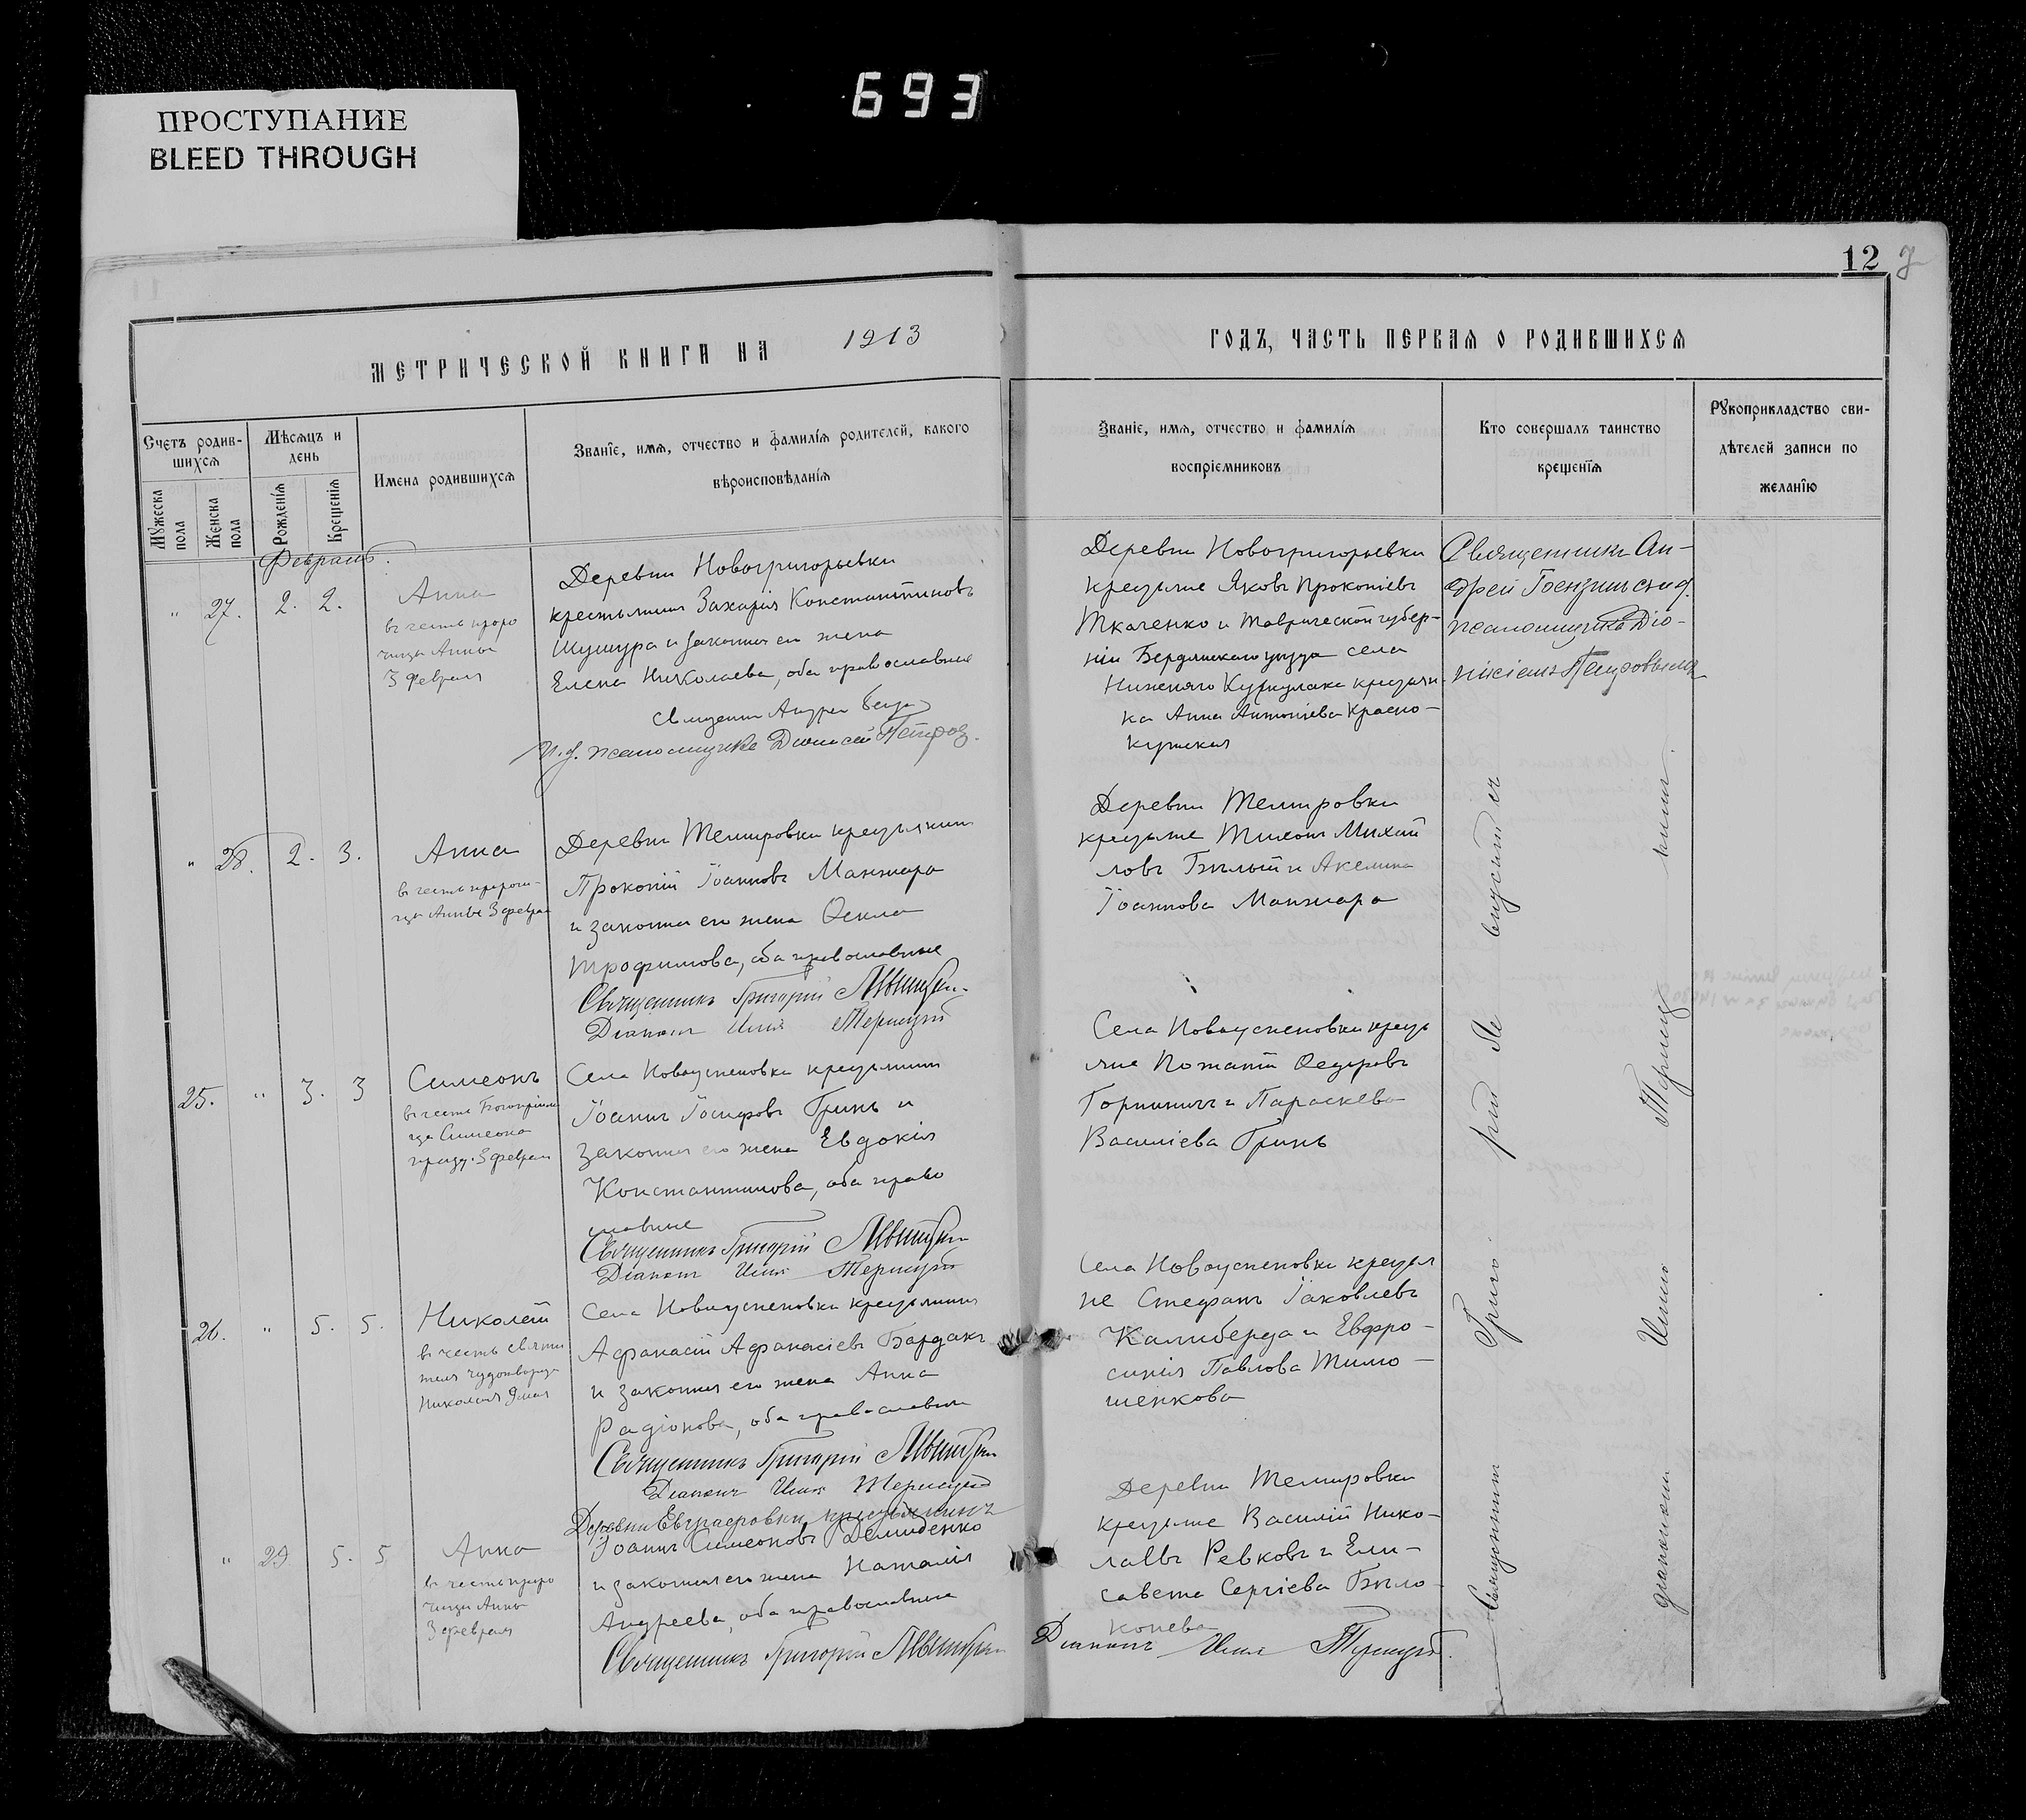 693
ПРОСТУПАНИЕ
BLEED THROUGH
12
МЕТРИЧЕСКОЙ КНИГИ НА 1913
ГОДЪ, ЧАСТЬ ПЕРВАЯ О РОДИВШИХСЯ
Счетъ родив-
шихся
Мужеска
пола
Женска
пола
Мѣсяцъ и
день
Рожденія
Крещенія
Имена родившихся
Званіе, имя, отчество и фамилія родителей, какого
вѣроисповѣданія
Званіе, имя, отчество и фамилія
воспріемниковъ
Кто совершалъ таинство
крещенія
Рукоприкладство сви-
дѣтелей записи по
желанію
Февраль
" 27. 2. 2.
Анна
въ честь проро
чицы Анны
3 февраля
Деревни Новогригорьевки
крестьянинъ Захарія Константиновъ
и законная его жена
Елена Николаева, оба православные
Священникъ Андрей
И. д. псаломщика Діонисій Петров
Деревни Новогригорьевки
крестьяне Яковъ Прокопіевъ
Ткаченко и Таврической губер-
ніи Бердянскаго уѣзда села
Нижняго Куркулака крестьян
ка Анна Антоніева Красно-
кутская
Священникъ Ан-
дрей
псаломщика Діо-
нісіемъ
" 28. 2. 3.
Анна
въ честь пророч-
цы Анны 3 феврал
Деревни Темировки крестьянинъ
Прокопій Іоанновъ Манжара
и законная его жена Ѳекла
Трофимова, оба православные
Священникъ Григорій
Діаконъ Илія
Деревни Темировки
крестьяне Тихонъ Михай
ловъ Бѣлый и Акелина
Іоаннова Манжара
25. " 3. 3
Симеонъ
въ честь Богопріим
ца Симеона
празд. 3 феврал
Села Новоуспеновки крестьянинъ
Іоаннъ Іосифовъ Гринь и
законная его жена Евдокія
Константинова, оба право
славные
Священникъ Григорій
Діаконъ Илія
Села Новоуспеновки кресть
яне Потапій Ѳедоровъ
и Параскева
Василіева Гринь
26. " 5. 5.
Николай
въ честь святи
теля чудотворца
Николая 9 мая
Села Новоуспеновки крестьянинъ
Афанасій Афанасіевъ Бардакъ
и законная его жена Анна
Радіонова, оба православные
Священникъ Григорій
Діаконъ Илія
Села Новоуспеновки крестья
не Стефанъ Іаковлевъ
Калиберда и Евфро-
синія Павлова Тимо-
шенкова
" 29. 5. 5
Анна
въ честь проро
чицы Анны
3 февраля
Деревни Евграфовки крестьянинъ
Іоаннъ Симеоновъ Демиденко
и законная его жена Наталія
Андреева, оба православные
Священникъ Григорій
Діаконъ Илія
Деревни Темировки
крестьяне Василій Нико-
лаевъ Ревковъ и Ели-
савета Сергіева Бѣло-
конева
Священникъ Григорій
діакономъ Иліею